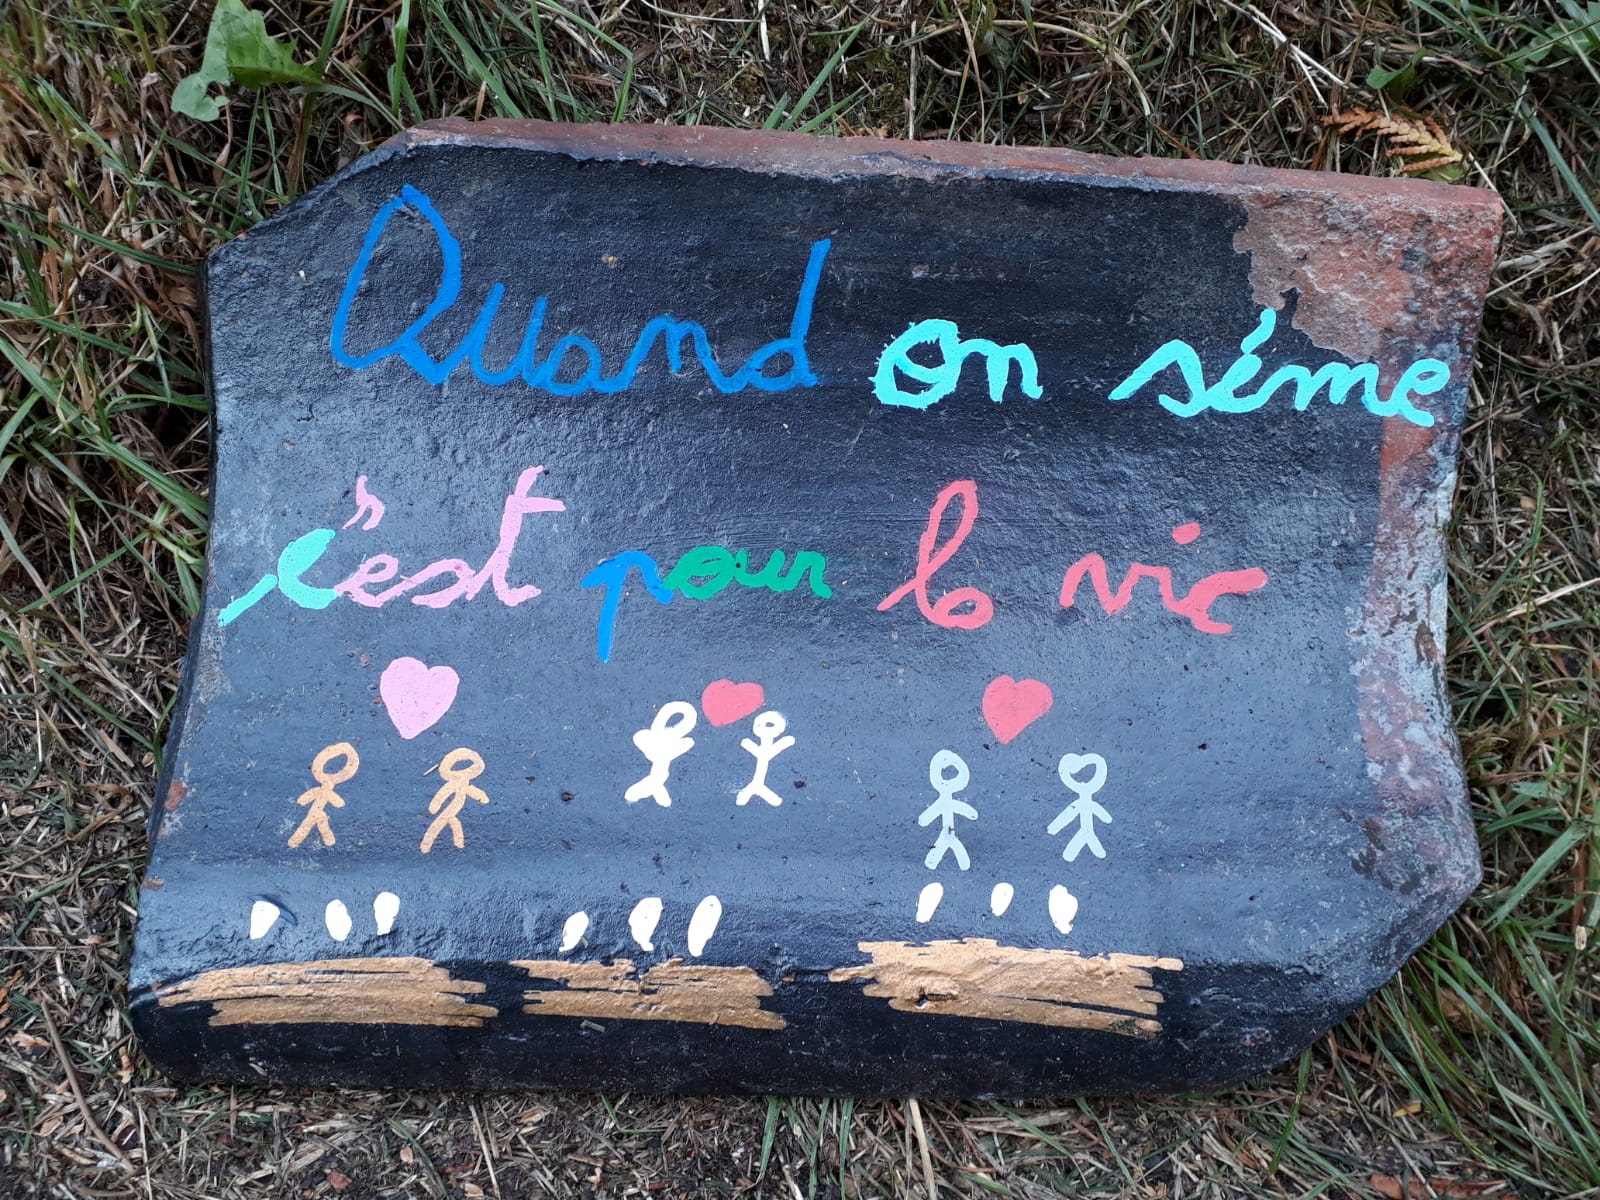 Quand on séme
c'est pour la vie